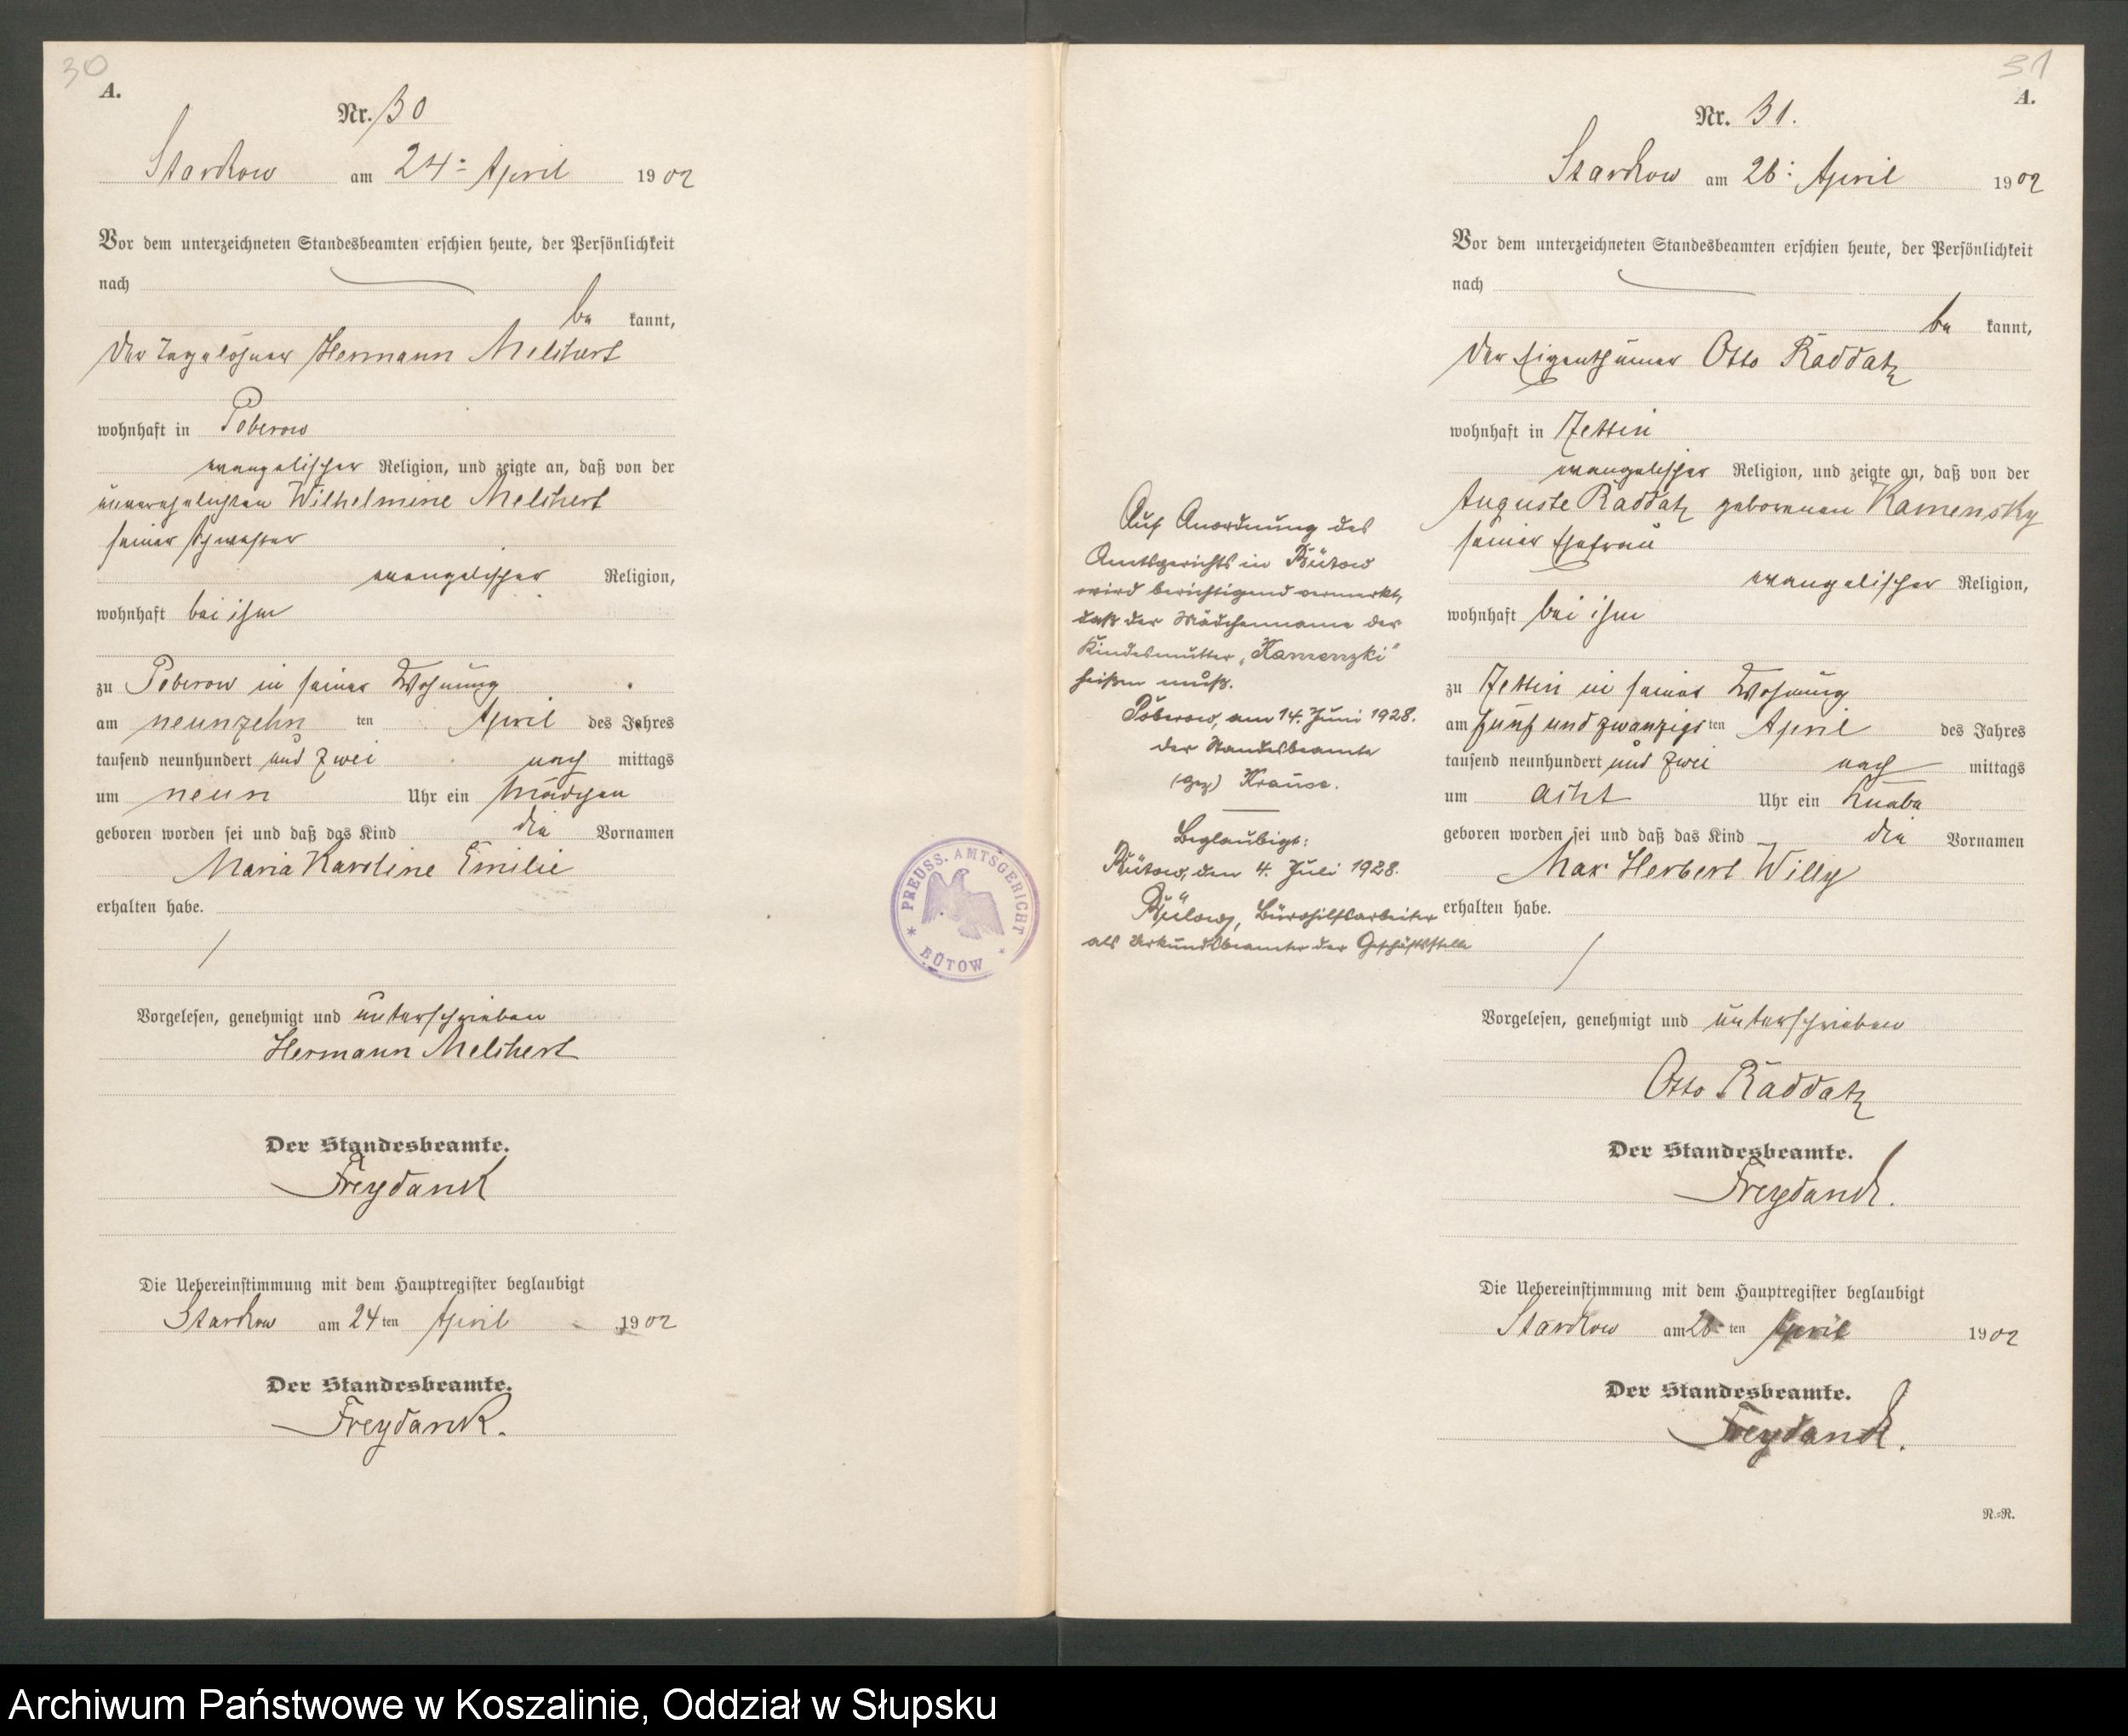 30
A.
Nr. 30
Starkow am 24ten April 1902
Vor dem unterzeichneten Standesbeamten erschien heute, der Persönlichkeit
nach
be kannt,
der Tagelöhner Hermann Melchert
wohnhaft in Poberow
evangelischer Religion, und zeigte an, daß von der
unverehelichten Wilhelmine Melchert
seiner Schwester
evangelischer Religion,
wohnhaft bei ihm
zu Poberow in seiner Wohnung
am neunzehn ten April des Jahres
tausend neunhundert und zwei nach mittags
um neun Uhr ein Mädchen
geboren worden sei und daß das Kind die Vornamen
Maria Karoline Emilie
erhalten habe.
Vorgelesen, genehmigt und unterschrieben
Hermann Melchert
Der Standesbeamte.
Freydanck
Die Uebereinstimmung mit dem Hauptregister beglaubigt
Starkow am 24 ten April 1902
Der Standesbeamte.
Freydanck.
PREUSS. AMTSGERICHT
* BÜTOW *
Auf Anordnung des
Amtsgerichts in Bütow
wird berichtigend vermerkt,
daß der Mädchenname der
Kindesmutter „Kamenzki"
heißen muß.
Poberow, am 14. Juni 1928.
Der Standesbeamte
(gez) Krause.
Beglaubigt:
Bütow, den 4. Juli 1928.
Bürohilfsarbeiter
als Urkundsbeamter der Geschäftsstelle
31
A.
Nr. 31.
Starkow am 26ten April 1902
Vor dem unterzeichneten Standesbeamten erschien heute, der Persönlichkeit
nach
be kannt,
der Eigenthümer Otto Raddatz
wohnhaft in Zettin
evangelischer Religion, und zeigte an, daß von der
Auguste Raddatz geborenen Kamensky
seiner Ehefrau
evangelischer Religion,
wohnhaft bei ihm
zu Zettin in seiner Wohnung
am fünf und zwanzigs ten April des Jahres
tausend neunhundert und zwei nach mittags
um acht Uhr ein Knabe
geboren worden sei und daß das Kind die Vornamen
Max Herbert Willy
erhalten habe.
Vorgelesen, genehmigt und unterschrieben
Otto Raddatz
Der Standesbeamte.
Freydanck.
Die Uebereinstimmung mit dem Hauptregister beglaubigt
Starkow am 26 ten April 1902
Der Standesbeamte.
Freydanck.
N.=R.
Archiwum Państwowe w Koszalinie, Oddział w Słupsku